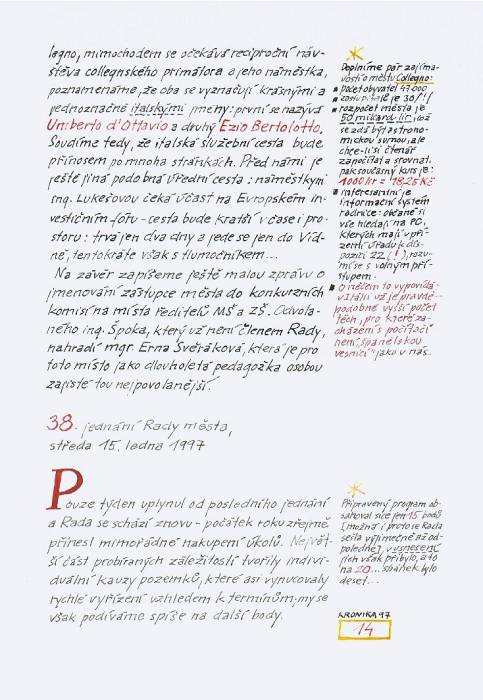 legno, mimochodem se očekává reciproční náv-
štěva collegnského primátora a jeho náměstka,
poznamenáme, že oba se vyznačují krásnými a
jednoznačně italskými jmény: první se nazývá
Umberto d'Ottavio a druhý Ezio Bertolotto.
Soudíme tedy, že italská služební cesta bude
přínosem po mnoha stránkách. Před námi je
ještě jiná podobná úřední cesta: náměstkyni
ing. Lukešovou čeká účast na Evropském in-
vestičním fóru - cesta bude kratší v čase i pro-
storu: trvá jen dva dny a jede se jen do Víd-
ně, tentokráte však s tlumočníkem...
Na závěr zapíšeme ještě malou zprávu o
jmenování zástupce města do konkurzních
komisí na místa ředitelů MŠ a ZŠ. Odvola-
ného ing. Špoka, který už není členem Rady,
nahradí mgr. Erna Svěráková, která je pro
toto místo jako dlouholetá pedagožka osobou
zajisté tou nejpovolanější.
38. jednání Rady města,
středa 15. ledna 1997
Pouze týden uplynul od posledního jednání
a Rada se schází znovu - počátek roku zřejmě
přinesl mimořádné nakupení úkolů. Největ-
ší část probíraných záležitostí tvořily indivi-
duální kauzy pozemků, které asi vynucovaly
rychlé vyřízení vzhledem k termínům; my se
však podíváme spíše na další body.
Doplníme pár zajíma-
vostí o městu Collegno:
počet obyvatel 47000
zastupitelé je 30/1/
rozpočet města je
50 miliard lir, což
se zdá být astrono-
mickou sumou, ale
chce-li si čtenář
započítat a srovnat,
pak současný kurs je:
1000 lir = 18,25 Kč
interesantní je
informační systém
radnice: občané si
vše hledají na PC,
kterých mají v pří-
zemí úřadu k dis-
pozici 22 (!), rozu-
mí se s volným pří-
stupem.
O něčem to vypovídá:
v Itálii už je pravdě-
podobně vyšší počet
těch, pro které za-
cházení s počítači
není „španělskou
vesnicí" jako v nás.
Připravený program ob-
sahoval sice jen 15 bodů
[možná i proto se Rada
sešla výjimečně až od-
poledne], v usnesení
jich však přibylo, a to
na 20... stránek bylo
deset...
KRONIKA 97
14